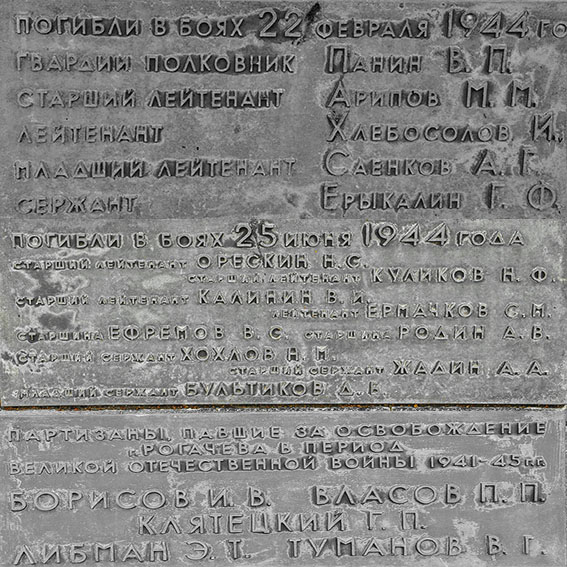 ПОГИБЛИ В БОЯХ 22 ФЕВРАЛЯ 1944 ГО
ГВАРДИИ ПОЛКОВНИК ПАНИН В. П.
СТАРШИЙ ЛЕЙТЕНАНТ АРИПОВ М. М.
ЛЕЙТЕНАНТ ХЛЕБОСОЛОВ И.
МЛАДШИЙ ЛЕЙТЕНАНТ САЕНКОВ А. Г.
СЕРЖАНТ ЕРЫКАЛИН Г. Ф.
ПОГИБЛИ В БОЯХ 25 ИЮНЯ 1944 ГОДА
СТАРШИЙ ЛЕЙТЕНАНТ ОРЕСКИН Н.С.
СТАРШИЙ ЛЕЙТЕНАНТ КУЛИКОВ Н. Ф.
СТАРШИЙ ЛЕЙТЕНАНТ КАЛИНИН В. И.
ЛЕЙТЕНАНТ ЕРМАЧКОВ С. М.
СТАРШИНА ЕФРЕМОВ В. С. СТАРШИНА РОДИН А. В.
СТАРШИЙ СЕРЖАНТ ХОХЛОВ Н. М.
СТАРШИЙ СЕРЖАНТ ЖАДИН А. А.
МЛАДШИЙ СЕРЖАНТ БУЛЬТИКОВ Д. Е
ПАРТИЗАНЫ, ПАВШИЕ ЗА ОСВОБОЖДЕНИЕ
г. РОГАЧЕВА В ПЕРИОД
ВЕЛИКОЙ ОТЕЧЕСТВЕННОЙ ВОЙНЫ 1941-45 г.г.
БОРИСОВ И. В. ВЛАСОВ П. П.
КЛЯТЕЦКИЙ Г. П.
ЛИБМАН Э. Т. ТУМАНОВ В. Г.